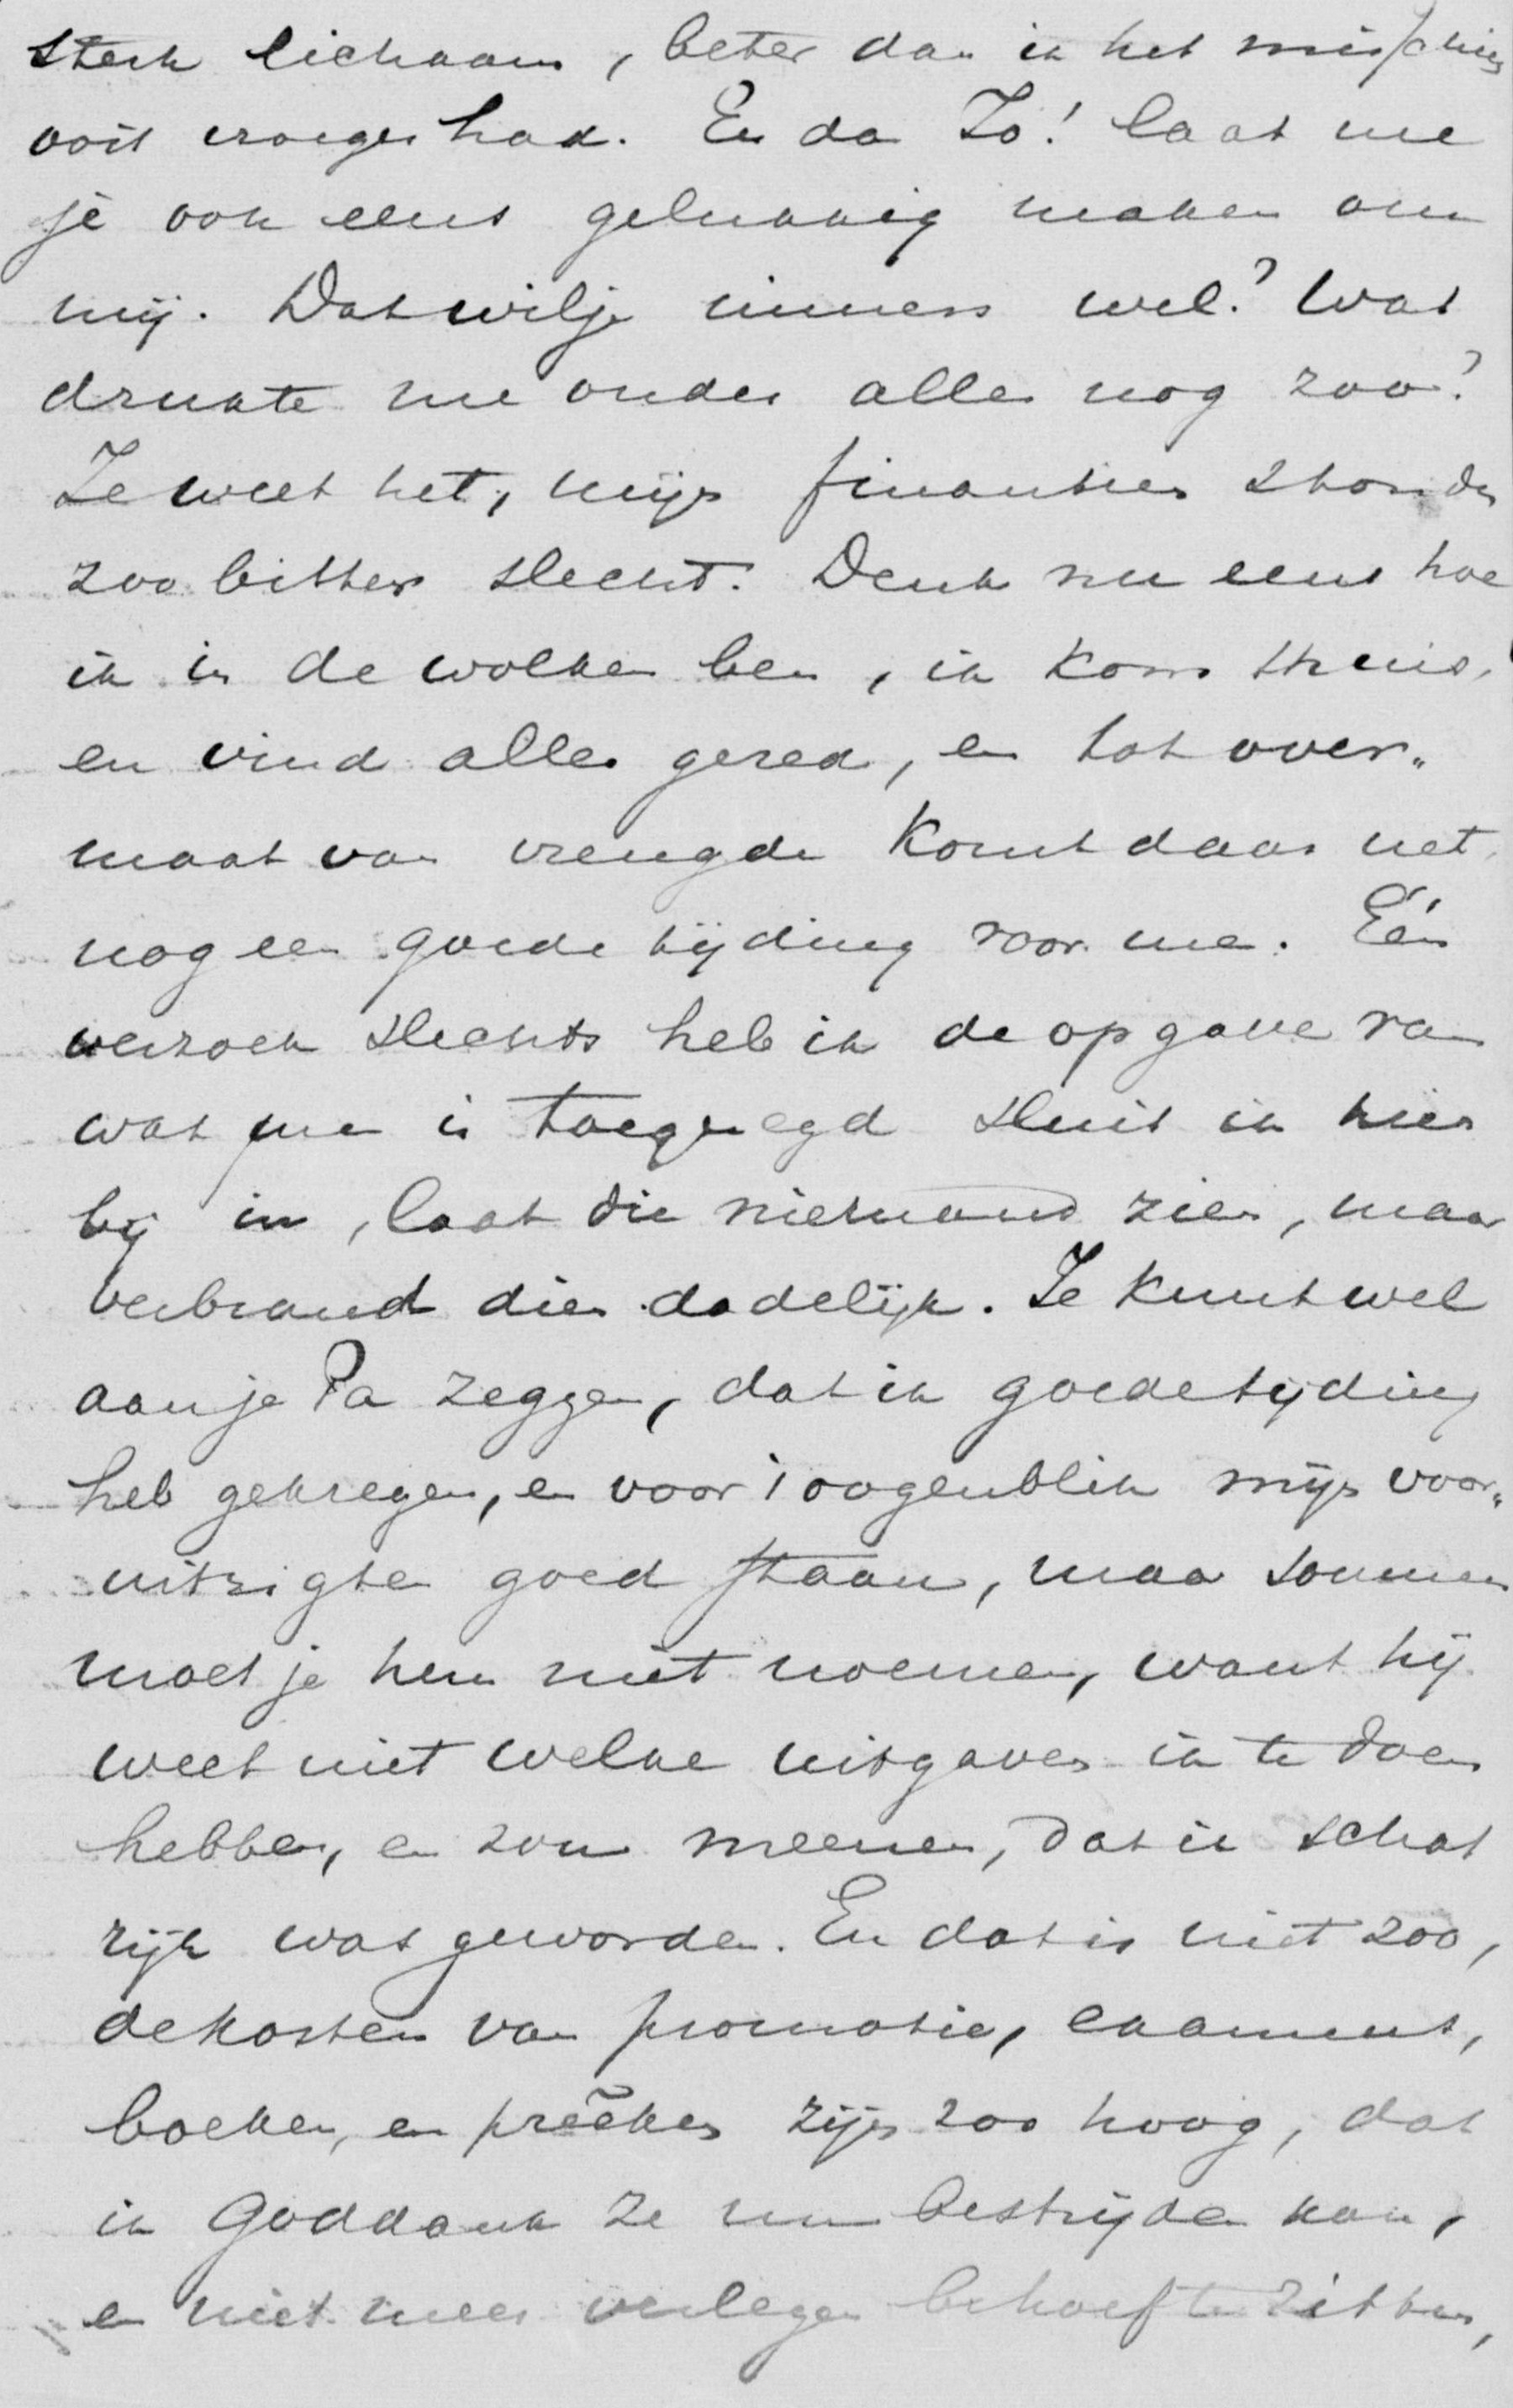 sterk lichaam, beter dan ik het misschien
ooit vroeger had. En dan Jo! laat me
je ook eens gelukkig maken om
mij. Dat wil je immers wel? Wat
drukte me onder alles nog zoo?
Je weet het, mijn finantien stonden
zoo bitter slecht. Denk nu eens hoe
ik in de wolken ben, ik kom thuis,
en vind alles gered, en tot over„
maat van vreugde komt daar net
nog een goede tijding voor me. Eén
verzoek slechts heb ik de opgave van
wat me is toegelegd sluit ik hier
bij in, laat die niemand zien, maar
verbrand dien dadelijk. Je kunt wel
aan je Pa zeggen, dat ik goede tijding
heb gekregen, en voor 't oogenblik mijn voor„
uitzigten goed staan, maar sommen
moet je hem niet noemen, want hij
weet niet welke uitgaven ik te doen
hebben, en zou meenen, dat ik schat
rijk was geworden. En dat is niet zoo,
de kosten van promotie, examens,
boeken, en preêken zijn zoo hoog, dat
ik Goddank ze nu bestrijden kan,
en niet meer verlegen behoef te zitten,